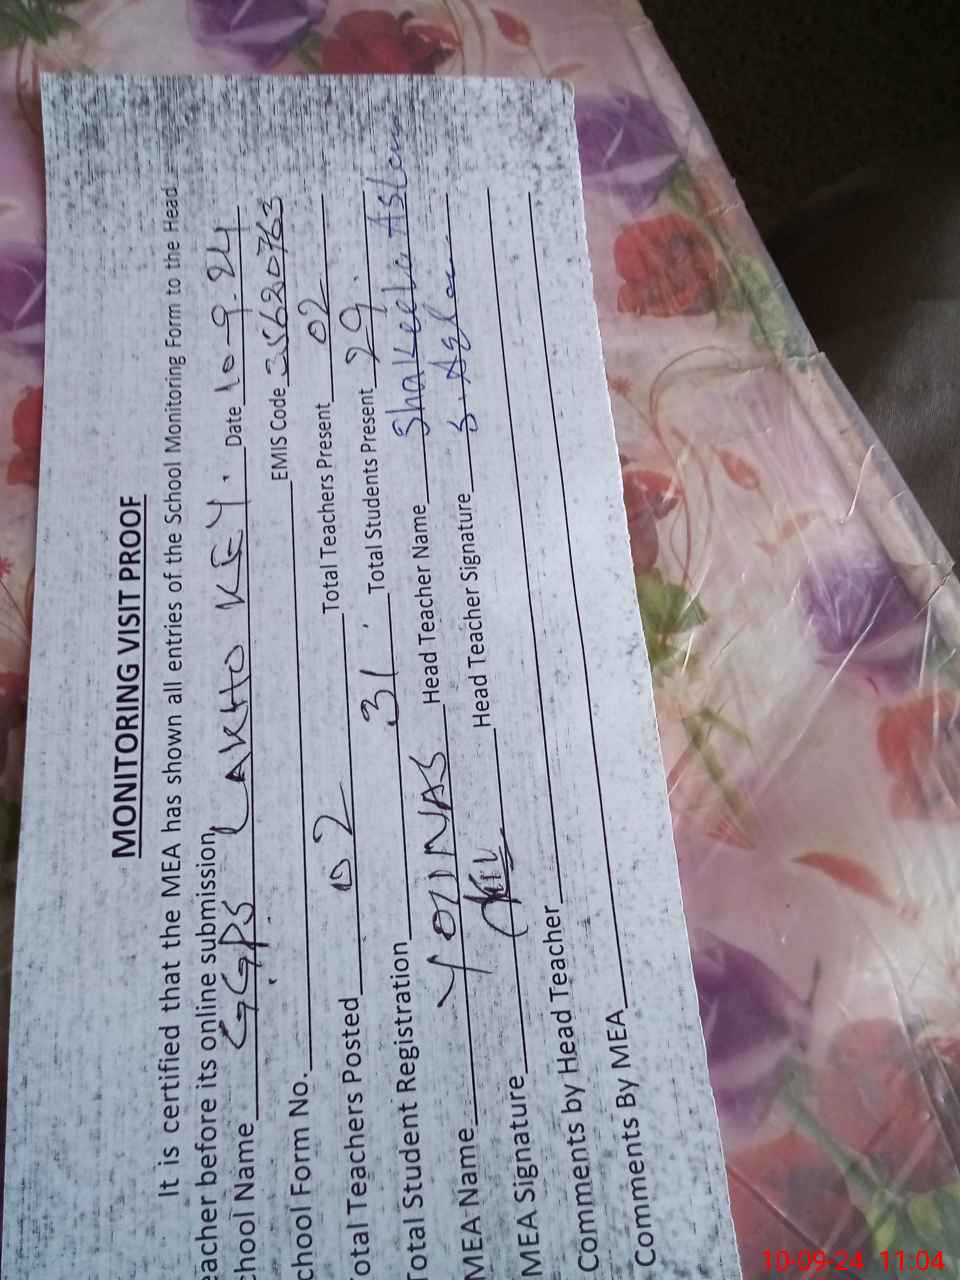 MONITORING VISIT PROOF
It is certified that the MEA has shown all entries of the School Monitoring Form to the Head
eacher before its online submission
chool Name GGPS LAKHO KEY. Date 10-9-24
chool Form No. EMIS Code 35620763
otal Teachers Posted 02 Total Teachers Present 02
Total Student Registration 31 Total Students Present 29
MEA Name YOUNAS Head Teacher Name Shakeela Aslam
MEA Signature Head Teacher Signature S. Aslam
Comments by Head Teacher
Comments By MEA
10-09-24 11:04